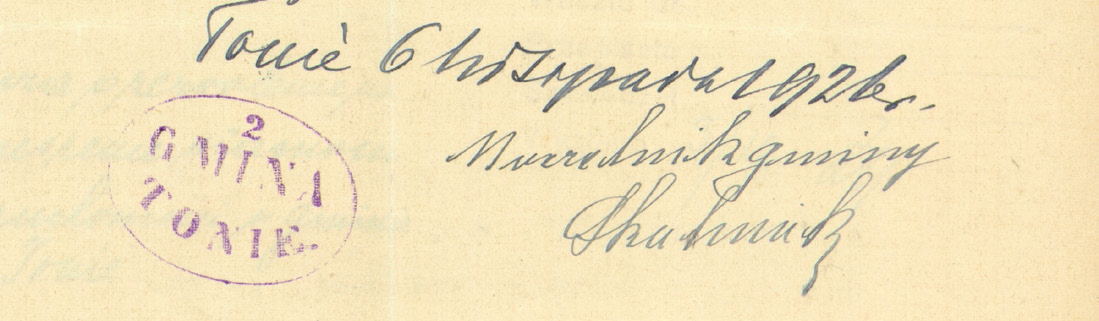 Tonie 6 listopada 1926 r.
2
GMINA
TONIE.
Naczelnik gminy